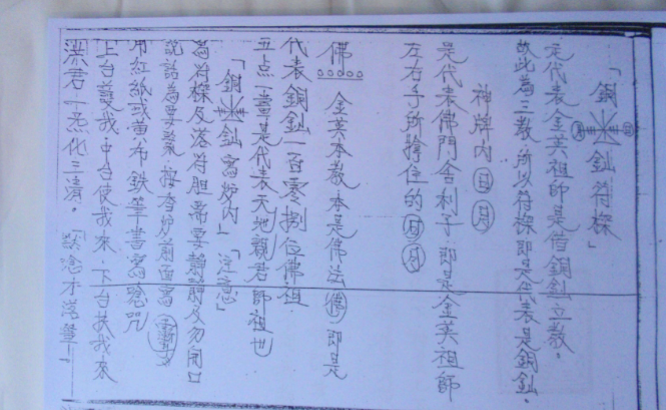 「銅釓符樑」
是代表金英祖師是佰銅釓立教。
故此為三教所以符樑即是代表是銅釓。
神牌內日月
是代表佛門舍利子即是金英祖師
左右手所撐住的日月
佛 金英本教本是佛法 即是
代表銅釓一百零捌位佛祖
五点一畫是代表天地親君師祖也
「銅釓寫炉內」「注意」
為符樑及落符胆需要 及勿開口
說話為要緊 按香炉前面寫
用紅紙或黃布鉄筆書寫 咒
上台護我。中台使我來。下台扶我來
洪君一炁化三清。「 念才落筆」